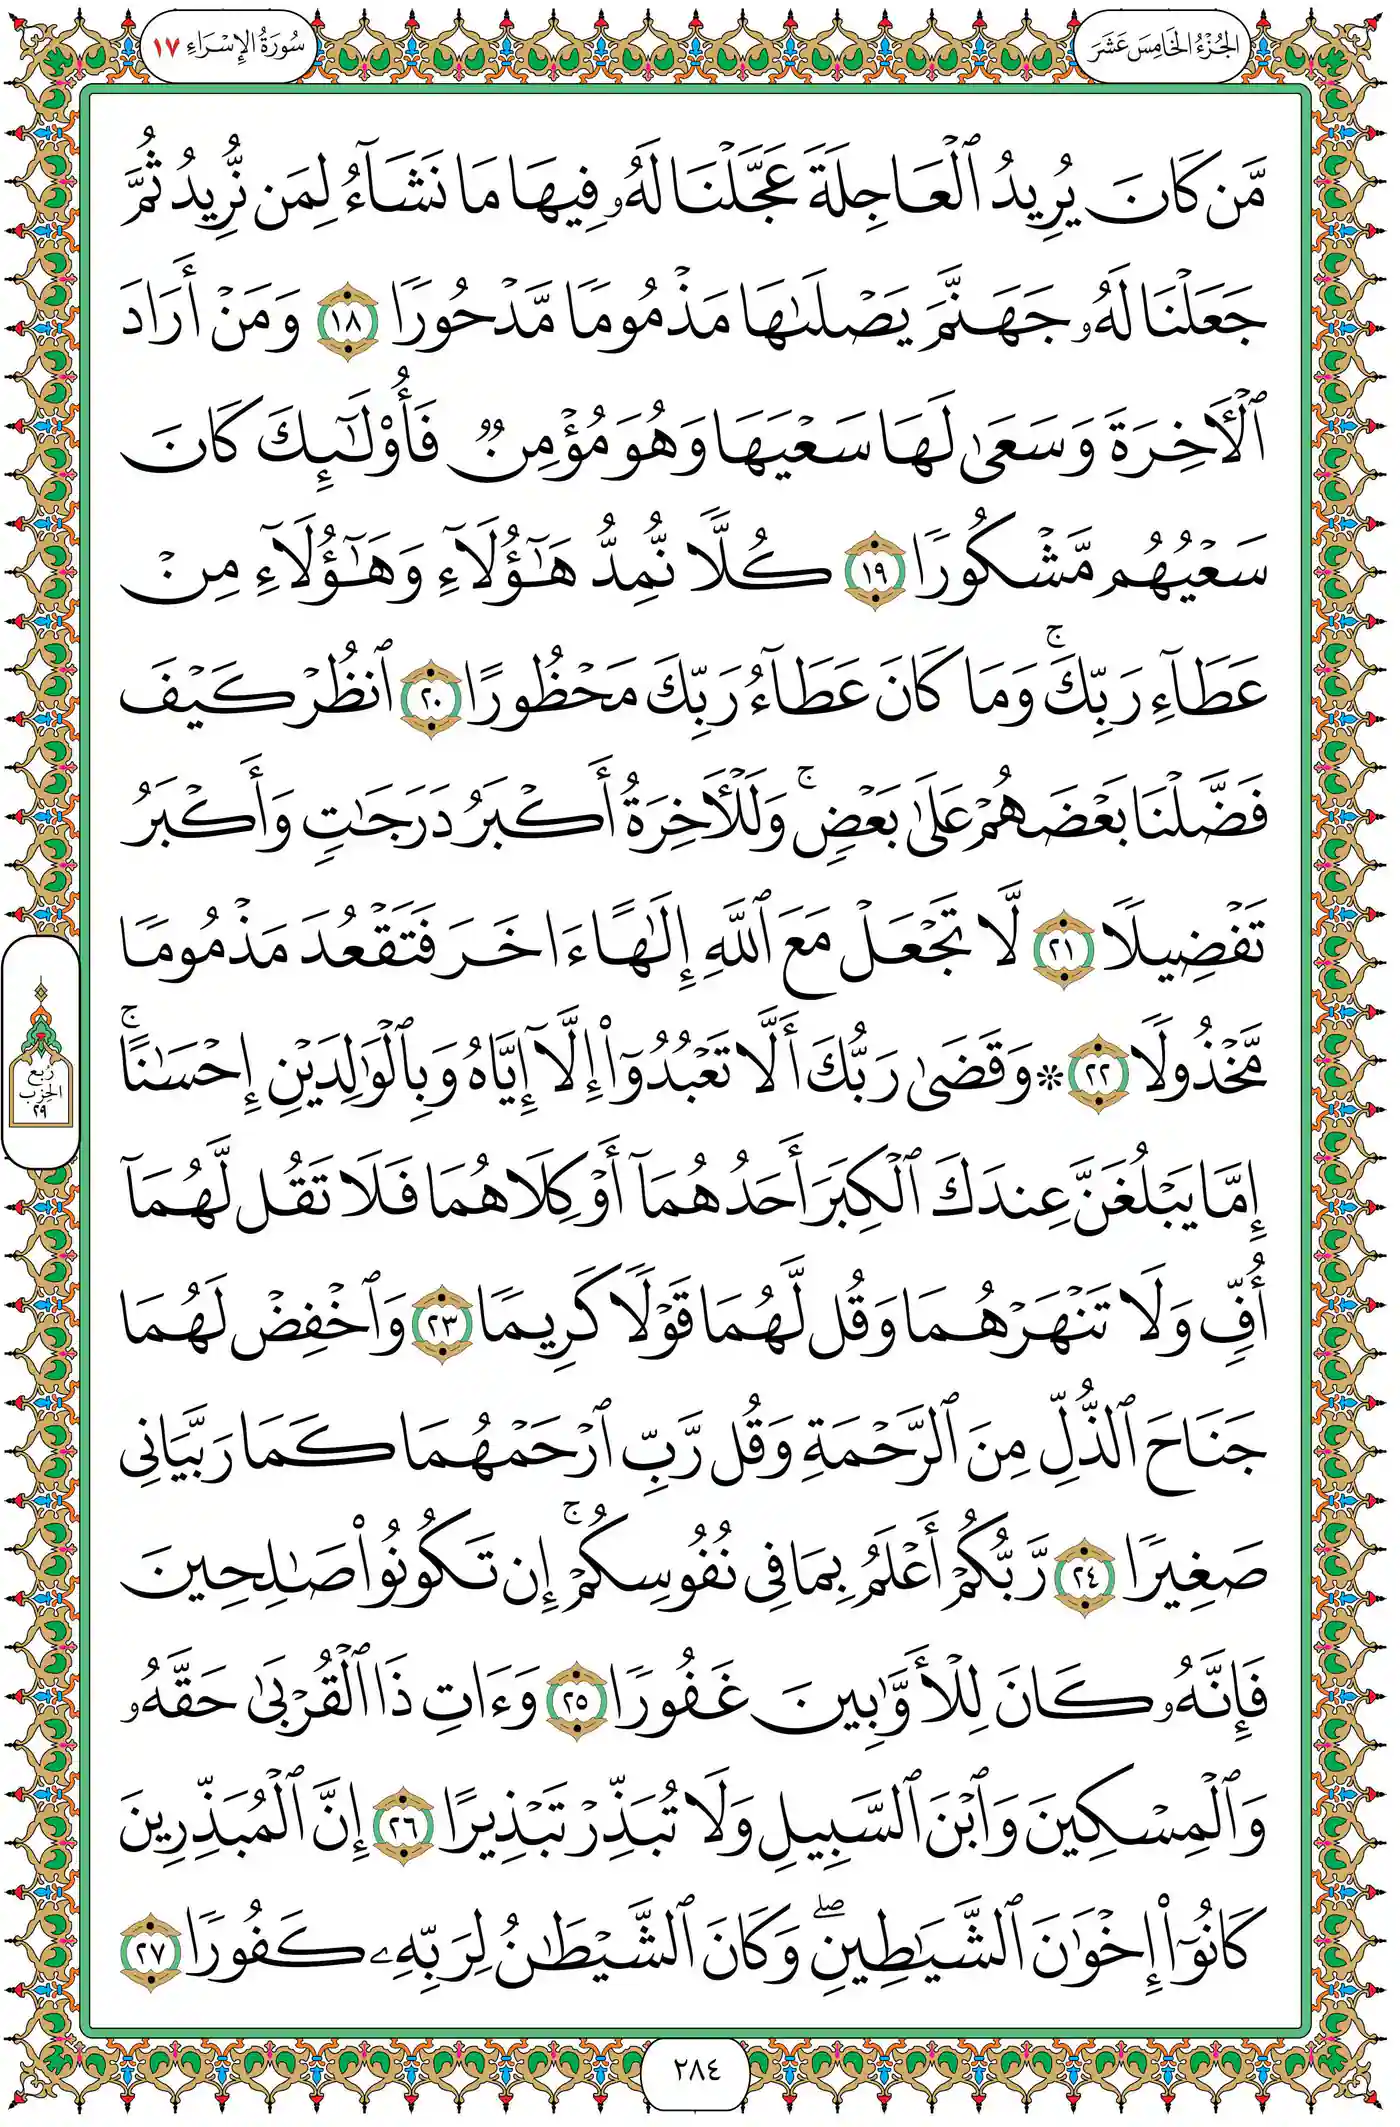 الجُزْءُ الخَامِسَ عَشَرَ
سُورَةُ الإِسْرَاءِ ١٧
مَّن كَانَ يُرِيدُ ٱلْعَاجِلَةَ عَجَّلْنَا لَهُۥ فِيهَا مَا نَشَآءُ لِمَن نُّرِيدُ ثُمَّ
جَعَلْنَا لَهُۥ جَهَنَّمَ يَصْلَىٰهَا مَذْمُومًا مَّدْحُورًا ١٨ وَمَنْ أَرَادَ
ٱلْأَخِرَةَ وَسَعَىٰ لَهَا سَعْيَهَا وَهُوَ مُؤْمِنٌ فَأُوْلَـٰٓئِكَ كَانَ
سَعْيُهُم مَّشْكُورًا ١٩ كُلًّا نُّمِدُّ هَـٰٓؤُلَآءِ وَهَـٰٓؤُلَآءِ مِنْ
عَطَآءِ رَبِّكَ ۚ وَمَا كَانَ عَطَآءُ رَبِّكَ مَحْظُورًا ٢٠ ٱنظُرْ كَيْفَ
فَضَّلْنَا بَعْضَهُمْ عَلَىٰ بَعْضٍ ۚ وَلَلْأَخِرَةُ أَكْبَرُ دَرَجَـٰتٍ وَأَكْبَرُ
تَفْضِيلًا ٢١ لَّا تَجْعَلْ مَعَ ٱللَّهِ إِلَـٰهًا ءَاخَرَ فَتَقْعُدَ مَذْمُومًا
مَّخْذُولًا ٢٢ ۞ وَقَضَىٰ رَبُّكَ أَلَّا تَعْبُدُوٓا۟ إِلَّآ إِيَّاهُ وَبِٱلْوَٰلِدَيْنِ إِحْسَـٰنًا ۚ
إِمَّا يَبْلُغَنَّ عِندَكَ ٱلْكِبَرَ أَحَدُهُمَآ أَوْ كِلَاهُمَا فَلَا تَقُل لَّهُمَآ
أُفٍّ وَلَا تَنْهَرْهُمَا وَقُل لَّهُمَا قَوْلًا كَرِيمًا ٢٣ وَٱخْفِضْ لَهُمَا
جَنَاحَ ٱلذُّلِّ مِنَ ٱلرَّحْمَةِ وَقُل رَّبِّ ٱرْحَمْهُمَا كَمَا رَبَّيَانِى
صَغِيرًا ٢٤ رَّبُّكُمْ أَعْلَمُ بِمَا فِى نُفُوسِكُمْ ۚ إِن تَكُونُوا۟ صَـٰلِحِينَ
فَإِنَّهُۥ كَانَ لِلْأَوَّٰبِينَ غَفُورًا ٢٥ وَءَاتِ ذَا ٱلْقُرْبَىٰ حَقَّهُۥ
وَٱلْمِسْكِينَ وَٱبْنَ ٱلسَّبِيلِ وَلَا تُبَذِّرْ تَبْذِيرًا ٢٦ إِنَّ ٱلْمُبَذِّرِينَ
كَانُوٓا۟ إِخْوَٰنَ ٱلشَّيَـٰطِينِ ۖ وَكَانَ ٱلشَّيْطَـٰنُ لِرَبِّهِۦ كَفُورًا ٢٧
رُبع
الحِزْب
٢٩
٢٨٤